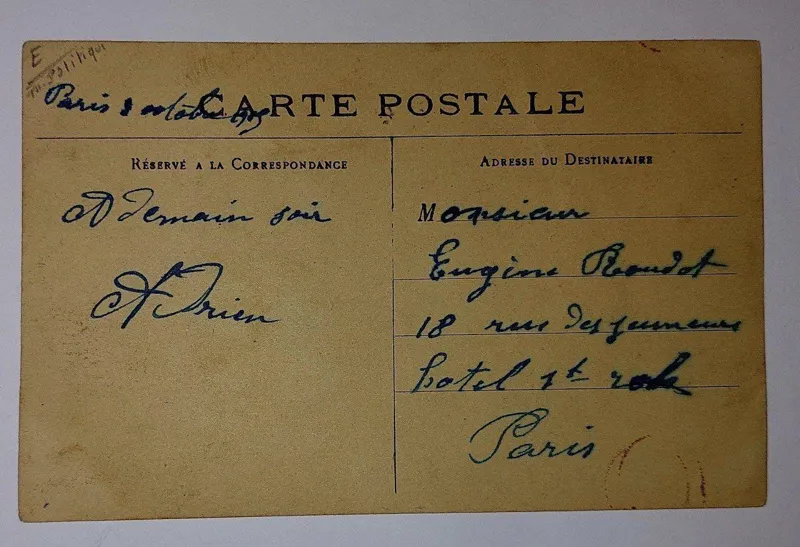 E
Politique
CARTE POSTALE
Paris 8 octobre 1905
RÉSERVÉ A LA CORRESPONDANCE
A demain soir
Adrien
ADRESSE DU DESTINATAIRE
Monsieur
Eugène Roudot
18 rue des jeuneurs
hotel st
Paris